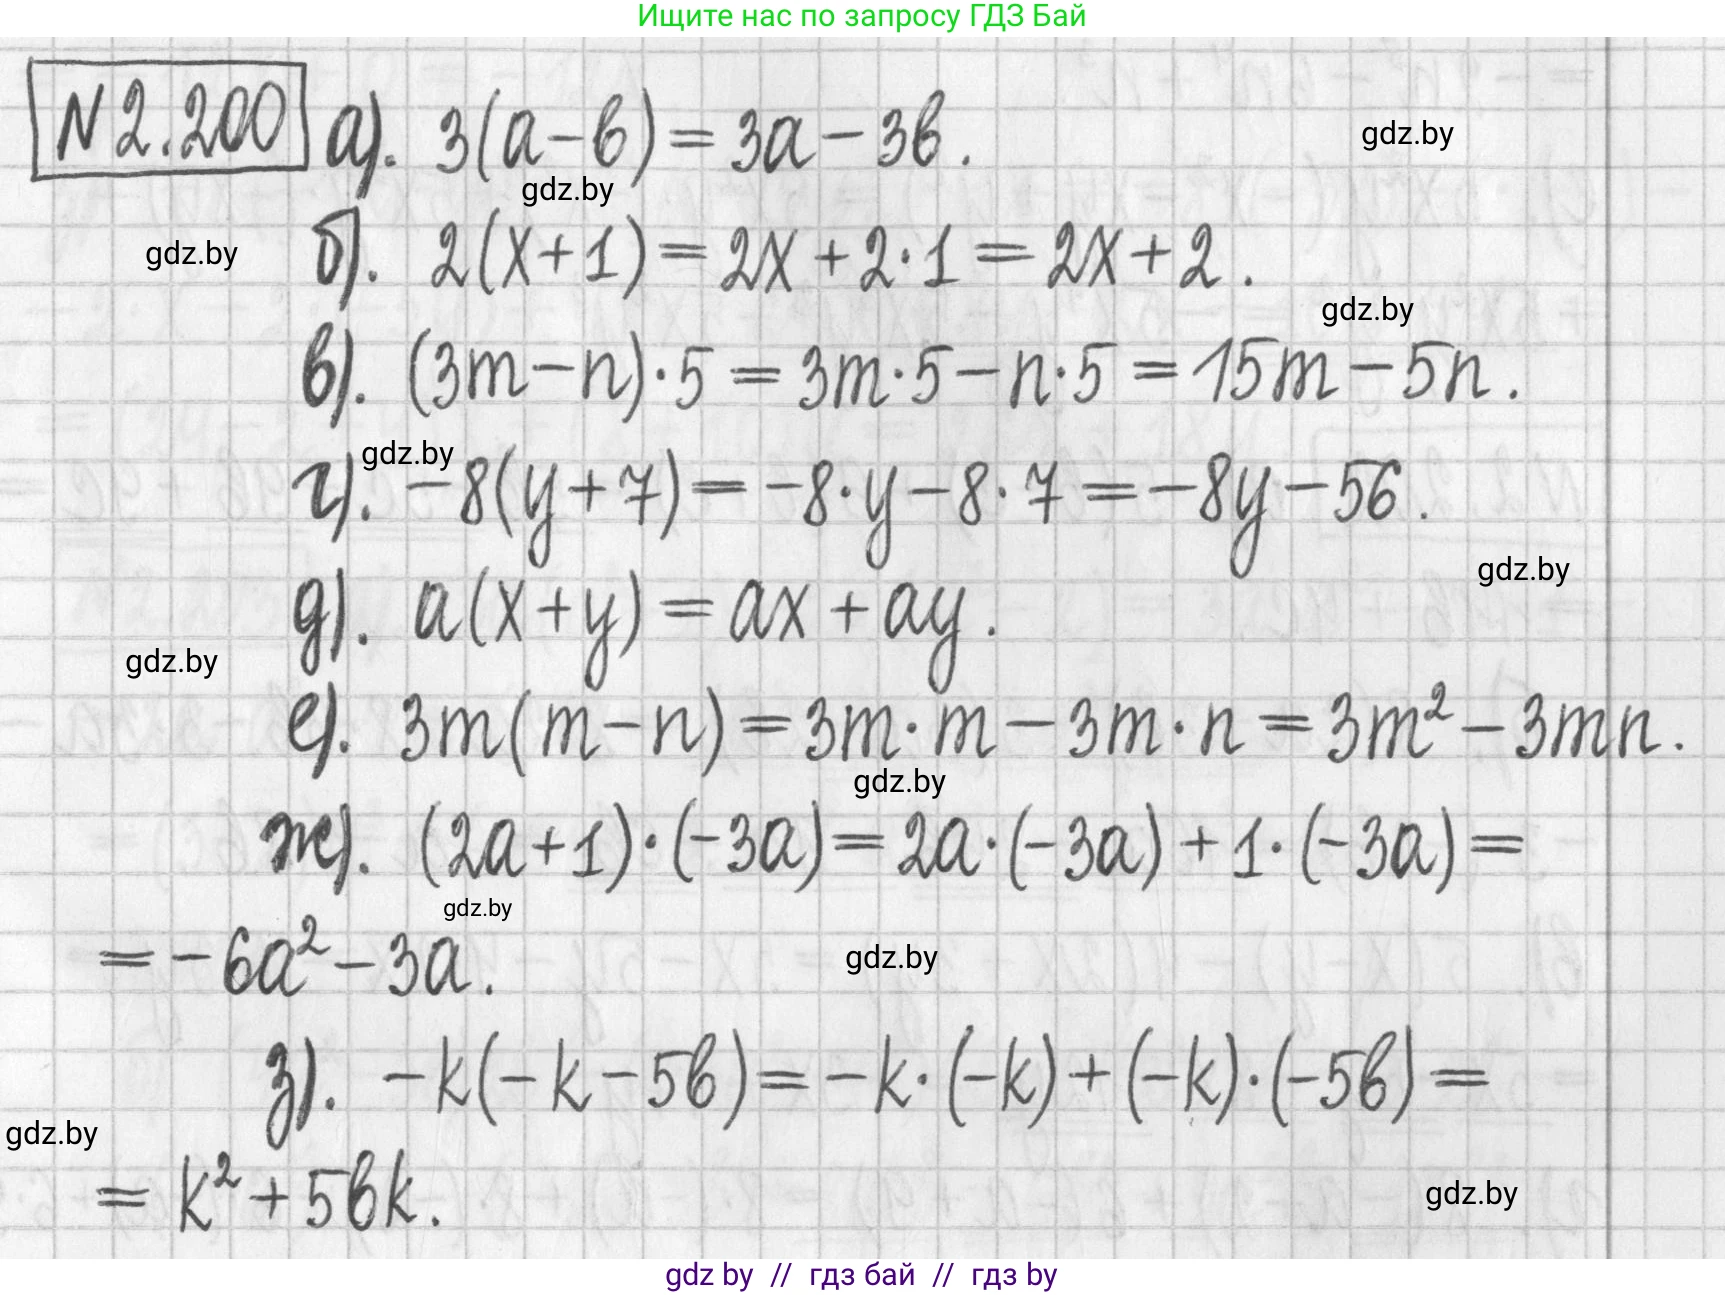 Ищите нас по запросу ГДЗ Бай
N 2.200 а). 3(a-b) = 3a - 3b.
gdz.by
gdz.by
gdz.by
б). 2(x+1) = 2x + 2·1 = 2x + 2.
gdz.by
в). (3m-n)·5 = 3m·5 - n·5 = 15m - 5n.
gdz.by
г). -8(y+7) = -8·y - 8·7 = -8y - 56.
gdz.by
д). a(x+y) = ax + ay.
gdz.by
е). 3m(m-n) = 3m·m - 3m·n = 3m² - 3mn.
gdz.by
ж). (2a+1)·(-3a) = 2a·(-3a) + 1·(-3a) =
gdz.by
= -6a² - 3a.
gdz.by
з). -k(-k-5b) = -k·(-k) + (-k)·(-5b) =
gdz.by
= k² + 5bk.
gdz.by
gdz by // гдз бай // гдз by